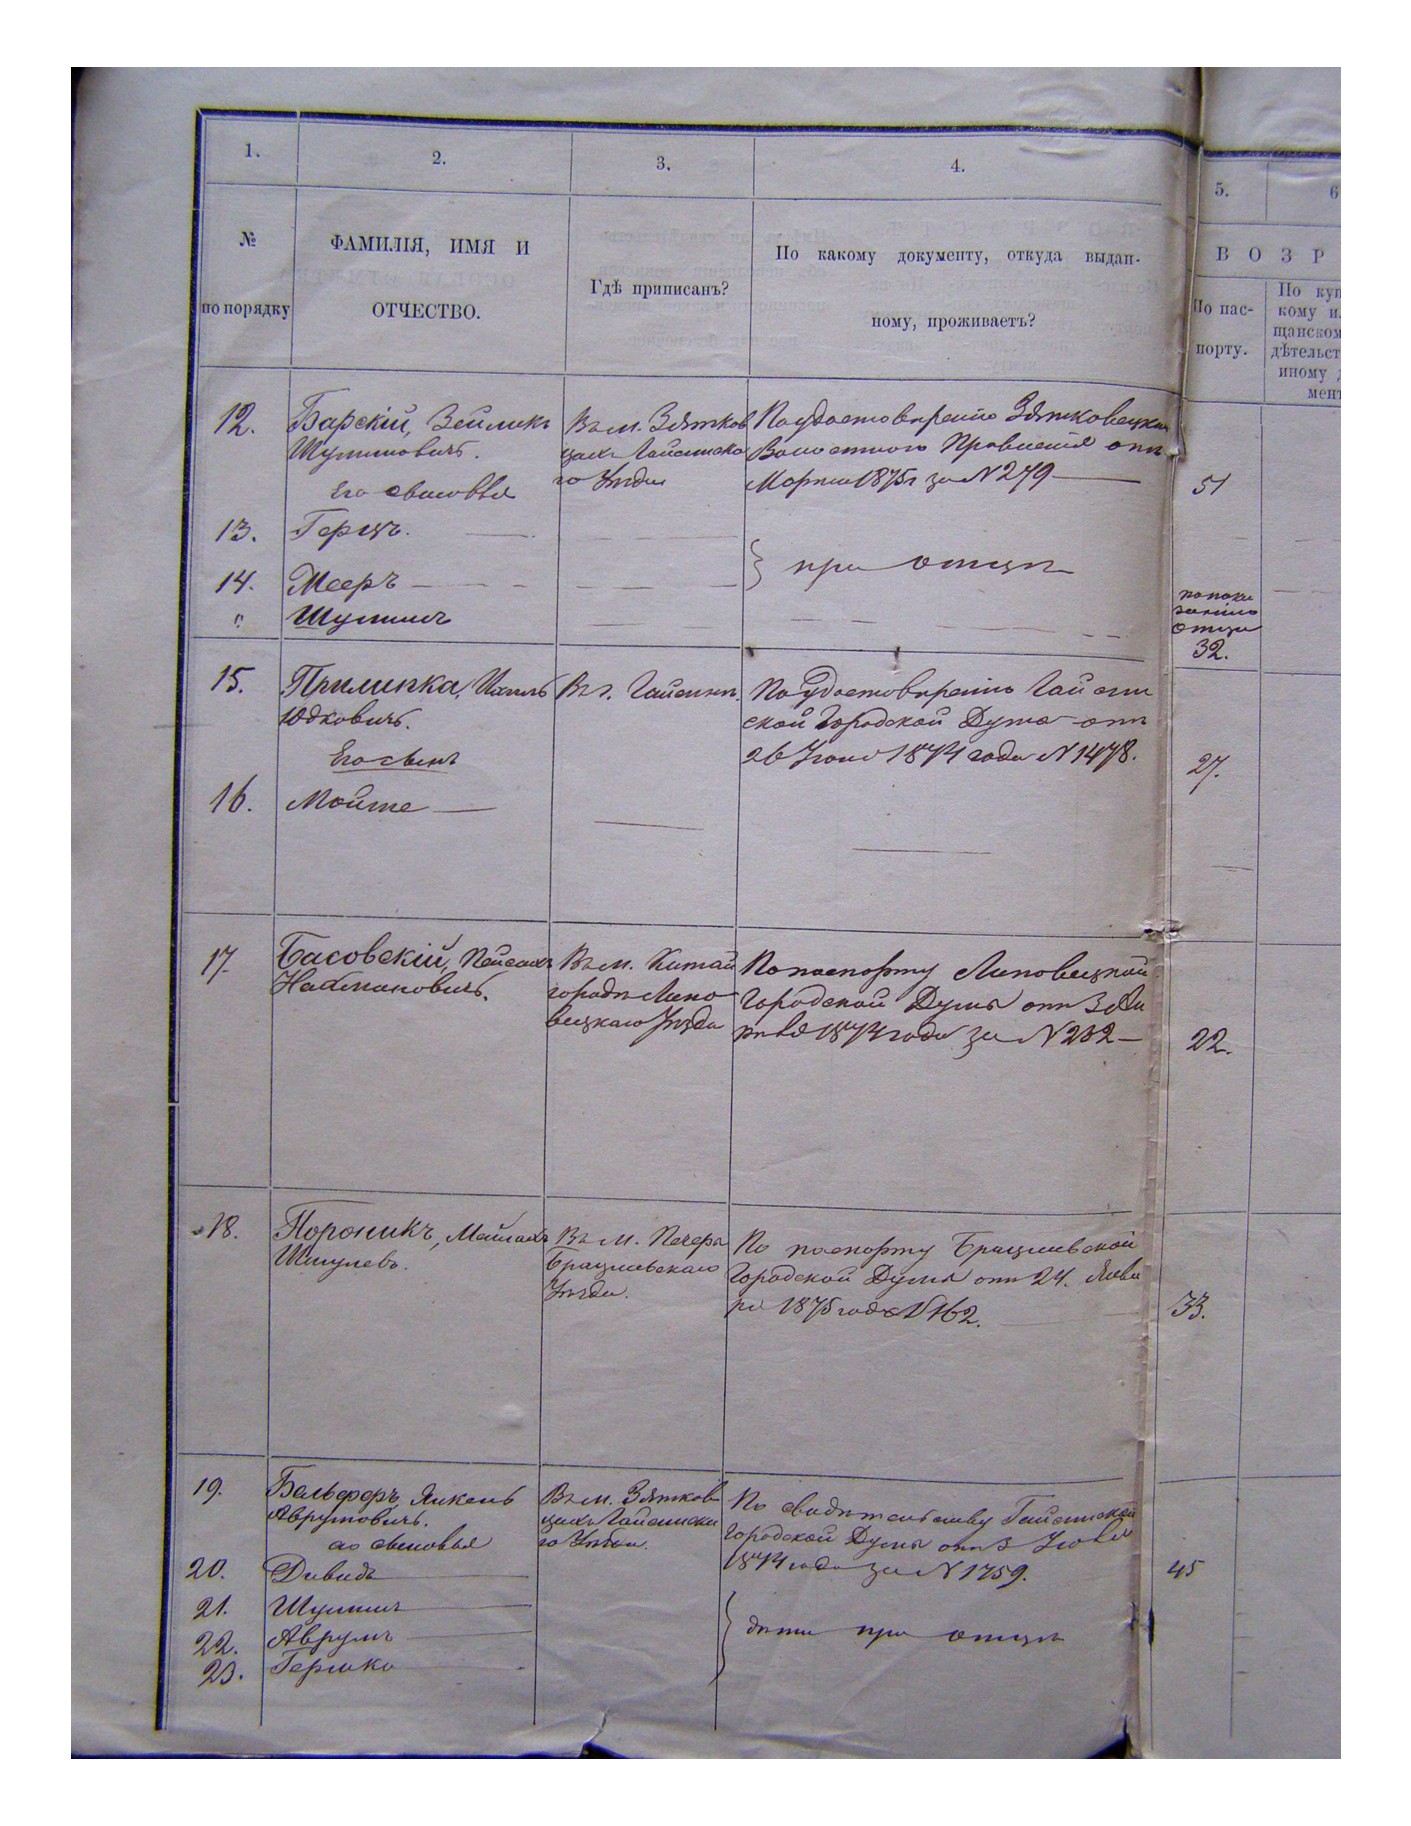 1. 2. 3. 4. 5. 6
№ по порядку
ФАМИЛІЯ, ИМЯ И
ОТЧЕСТВО.
Гдѣ приписанъ?
По какому документу, откуда выдан-
ному, проживаетъ?
В О З Р
По пас-
порту.
По куп
кому и
щанском
дѣтельст
иному д
мент
12. Барскій, Зейликъ
Шулимовичъ.
Его сыновья
Въ м. Зятков
цахъ Гайсинска
го Уѣзда
По удостовѣренію Зятковецкаго
Волостного Правленія отъ
Марта 1875 г за N 279
51
13. Герцъ.
14. Мееръ
" Шулимъ
при отцѣ
по пока
занію
отца
32.
15. Прилипка,
Юдковичъ.
Его сынъ
Въ г. Гайсинѣ.
По удостовѣренію Гайсин
ской Городской Думы отъ
26 1874 года N 1478.
27.
16. Мойше
17. Басовскій, Пейсахъ
Нахмановичъ.
Въ м. Китай
городѣ Липо
вецкаго Уѣзда
По паспорту Липовецкой
Городской Думы отъ 3
1874 года за N 232
22.
18. Пороникъ,
Шмулевъ.
Въ м. Печера
Брацлавскаго
Уѣзда.
По паспорту Брацлавской
Городской Думы отъ 24. Янва
ря 1875 года N 162.
33.
19. Бельферъ, Янкель
Аврумовичъ.
его сыновья
Въ м. Зятков
цахъ Гайсинска
го Уѣзда.
По свидѣтельству Гайсинской
Городской Думы отъ
1874 года за N 1759.
45
20. Давидъ
21. Шулимъ
22. Аврумъ
23. Гершко
дѣти при отцѣ